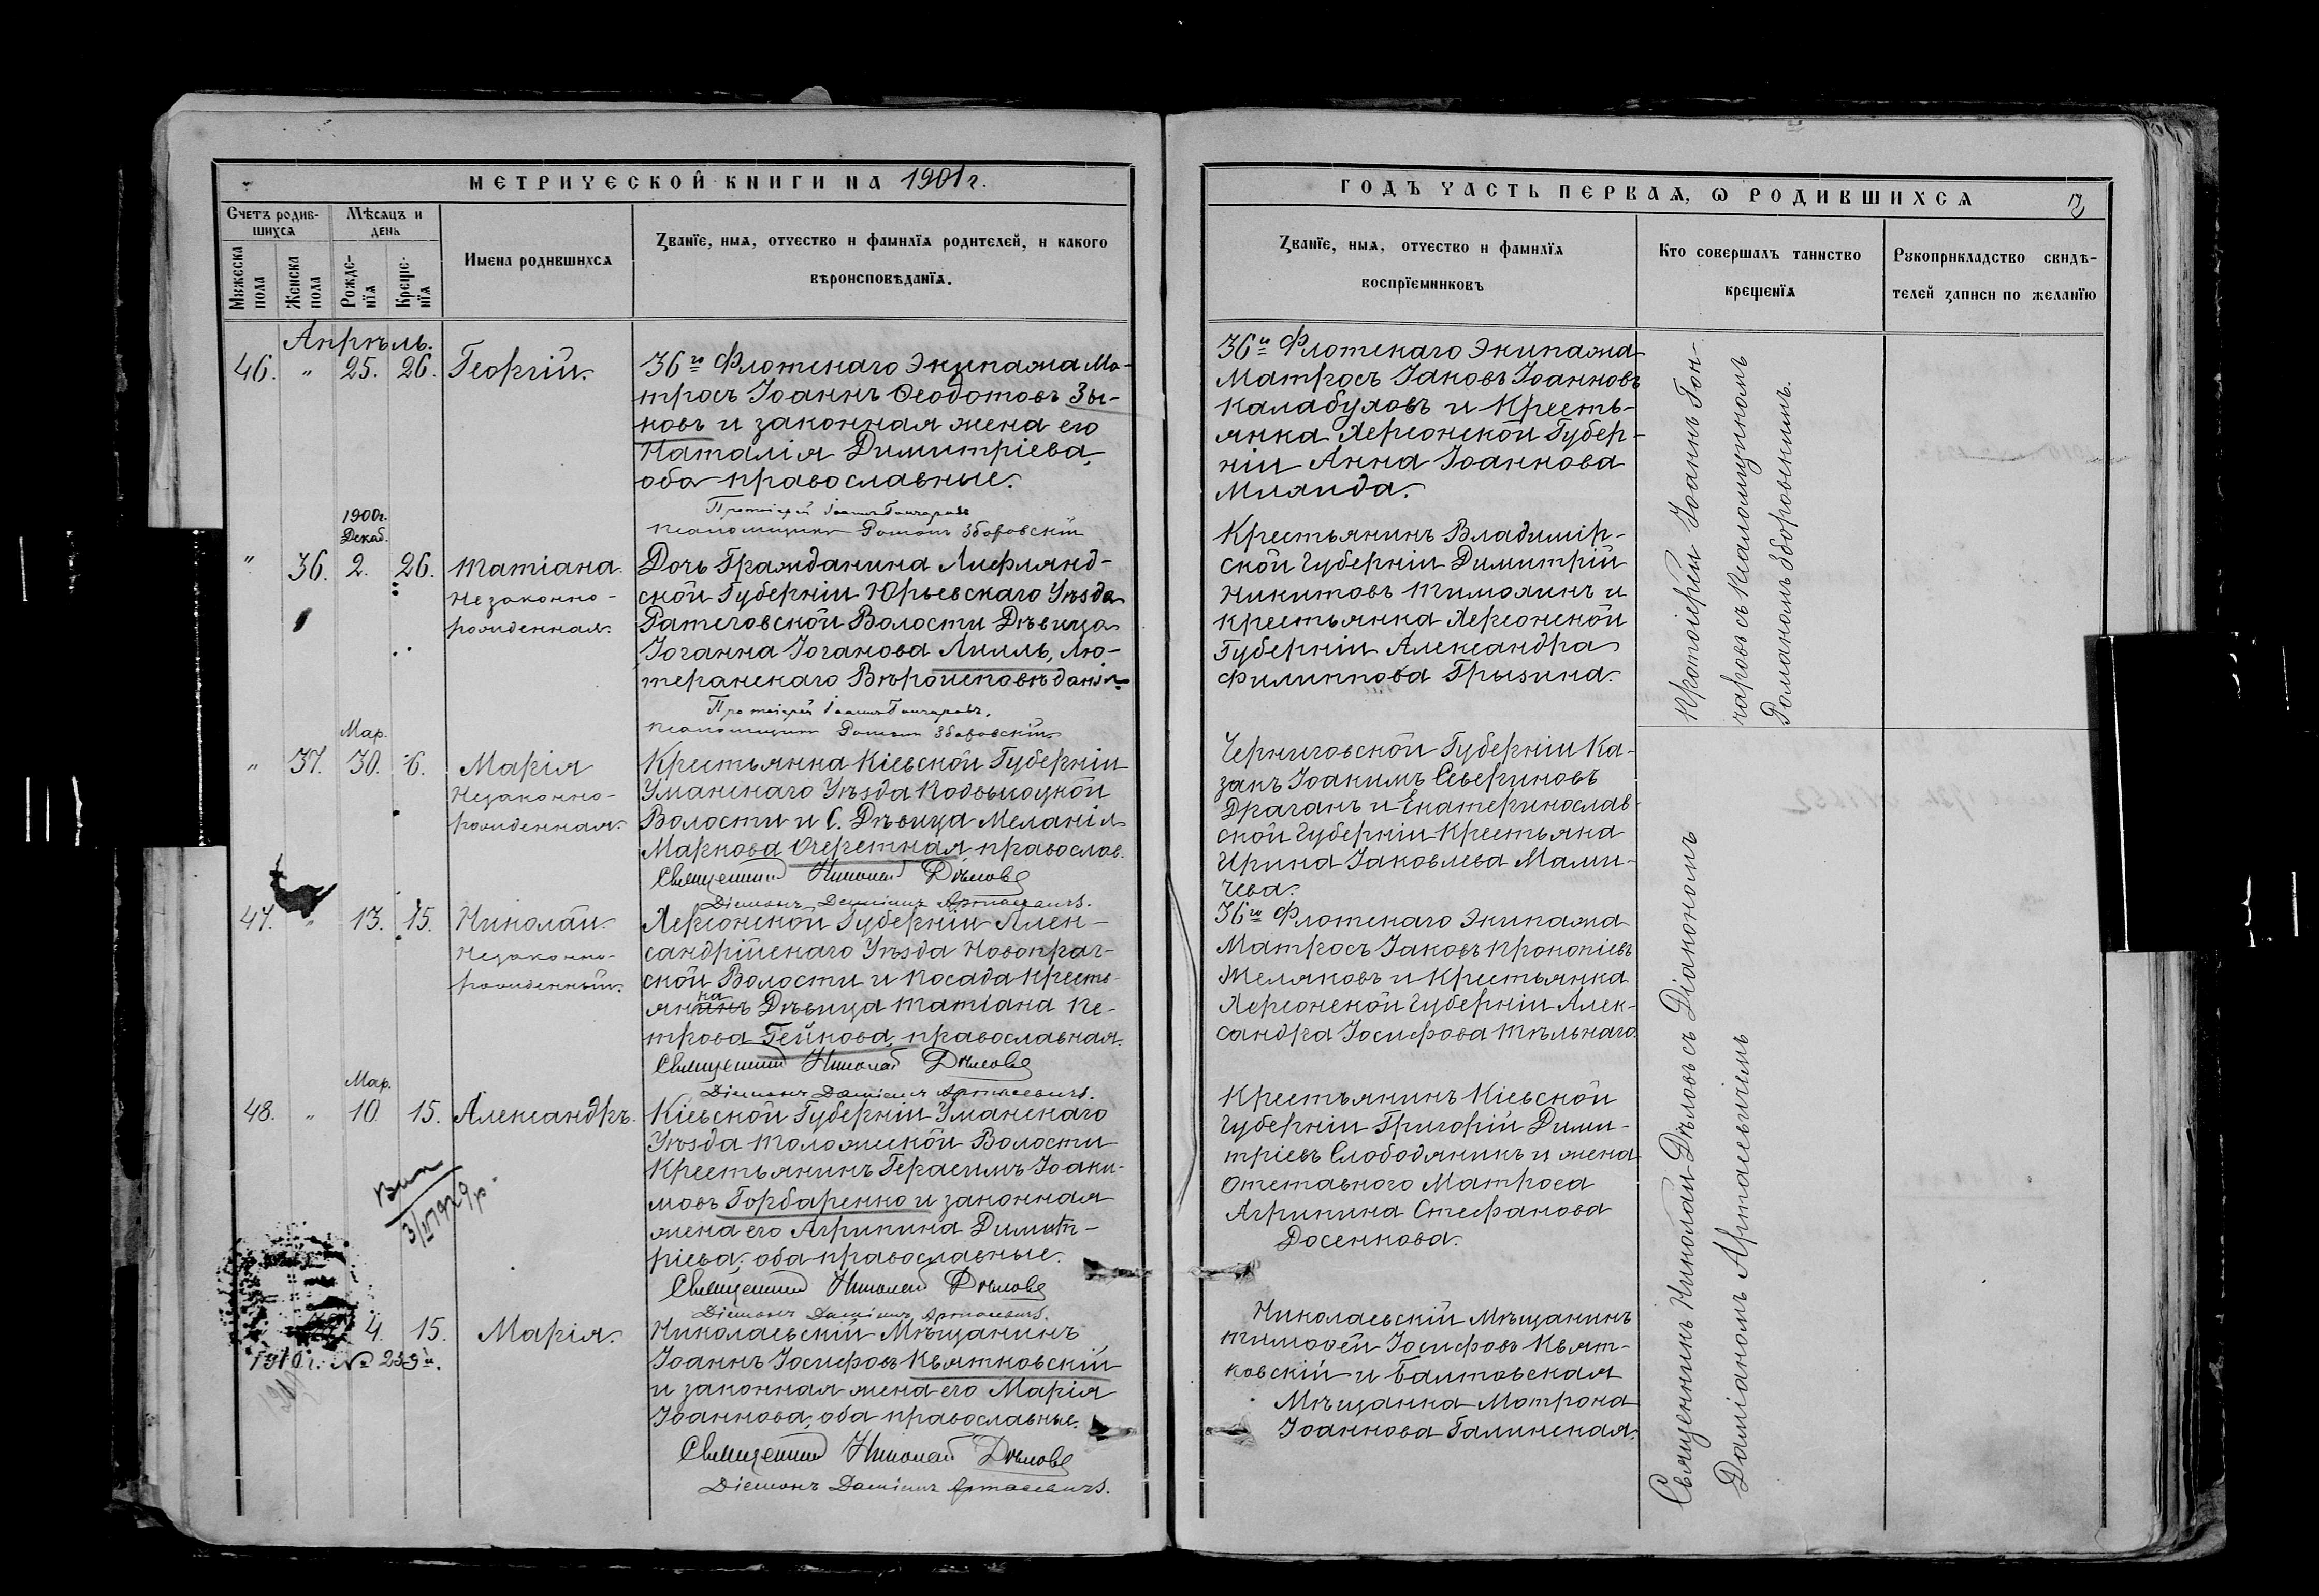 МЕТРИЧЕСКОЙ КНИГИ НА 1901 г.
Счетъ родив-
шихся
Мѣсяцъ и
день
Мужеска
пола
Женска
пола
Рожде-
нїя
Креще-
нїя
Имена родившихся
Званїе, имя, отчество и фамилїя родителей, и какого
вѣроисповѣданїя.
Апрѣль.
46. „ 25. 26. Георгій.
36го Флотскаго Экипажа Ма-
тросъ Іоаннъ Ѳеодотовъ Зы-
ковъ и законная жена его
Наталія Димитріева,
оба православные.
Протоіерей Іоаннъ Гончаровъ
Псаломщикъ Романъ Зборовскій
1900г.
Декаб.
„ 36. 2. 26. Татіана
Незаконно-
рожденная.
Дочь Гражданина Лифлянд-
ской Губерніи Юрьевскаго Уѣзда
Ратсговской Волости Дѣвица
Іоганна Іоганова Лилль, Лю-
теранскаго Вѣроисповѣданія
Протоіерей Іоаннъ Гончаровъ.
Псаломщикъ Романъ Зборовскій
Мар.
„ 37. 30. 6. Марія
Незаконно-
рожденная.
Крестьянка Кіевской Губерніи
Уманскаго Уѣзда
Волости и С. Дѣвица Меланія
Маркова Очеретная, православ.
Священникъ Николай Дѣловъ
Діаконъ Даміанъ Артасевичъ.
47. „ 13. 15. Николай
Незаконно-
рожденный.
Херсонской Губерніи Алек-
сандрійскаго Уѣзда Новопраг-
ской Волости и Посада Кресть-
янка Дѣвица Татіана Пе-
трова Гейкова, православная.
Священникъ Николай Дѣловъ
Діаконъ Даміанъ Артасевичъ.
Мар.
48. „ 10 15. Александръ.
Кіевской Губерніи Уманскаго
Уѣзда Волости
Крестьянинъ Герасимъ Іоаки-
мовъ Горбаренко и законная
жена его Агрипина Димит-
ріева, оба православные.
Священникъ Николай Дѣловъ
Діаконъ Даміанъ Артасевичъ.
4. 15. Марія.
1910 г. №
Николаевскій Мѣщанинъ
Іоаннъ Іосифовъ Квятковскій
и законная жена его Марія
Іоаннова, оба православные.
Священникъ Николай Дѣловъ
Діаконъ Даміанъ Артасевичъ.
ГОДЪ ЧАСТЬ ПЕРВАЯ, Ѡ РОДИВШИХСЯ
Званїе, имя, отчество и фамилїя
воспрїемниковъ
Кто совершалъ таинство
крещенїя
Рукоприкладство свидѣ-
телей записи по желанїю
36го Флотскаго Экипажа
Матросъ Іаковъ Іоанновъ
Калабуховъ и Кресть-
янка Херсонской Губер-
ніи Анна Іоаннова
Крестьянинъ Владимір-
ской Губерніи Димитрій
Никитовъ Тимохинъ и
крестьянка Херсонской
Губерніи Александра
Филиппова Грызина.
Черниговской Губерніи Ка-
закъ Іоакимъ Севериновъ
Драганъ и Екатеринослав-
ской Губерніи Крестьяна
Ирина Іаковлева Мами-
чева.
36го Флотскаго Экипажа
Матросъ Іаковъ Прокопіевъ
Желяковъ и Крестьянка
Херсонской Губерніи Алек-
сандра Іосифова Тѣльнаго.
Крестьянинъ Кіевской
Губерніи Григорій Дими-
тріевъ Слободяникъ и жена
Отставного Матроса
Агрипина Стефанова
Досенкова.
Николаевскій Мѣщанинъ
Тимоѳей Іосифовъ Квят-
ковскій и Балтовская
Мѣщанка Матрона
Іоаннова Галинская.
Протоіерей Іоаннъ Гон-
чаровъ съ Псаломщикомъ
Романомъ Зборовскимъ.
Священникъ Николай Дѣловъ съ Діакономъ
Даміаномъ Артасевичемъ